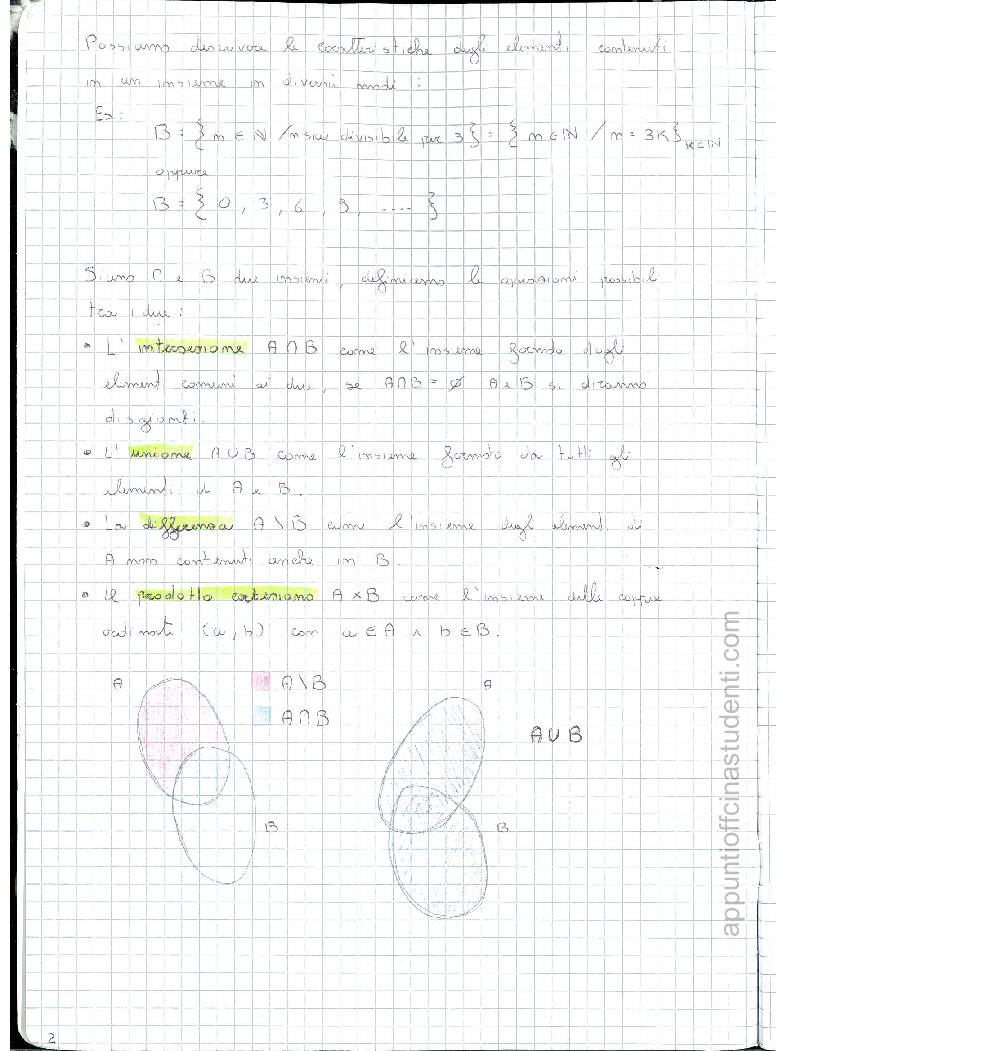 Possiamo descrivere le caratteristiche degli elementi contenuti
in un insieme in diversi modi :
Es:
B = { n ∈ ℕ / n sia divisibile per 3 } = { n ∈ ℕ / n = 3K } K ∈ ℕ
oppure
B = { 0 , 3 , 6 , 9 , .... }
Siano C e B due insiemi, definiamo le operazioni possibili
tra i due :
• L' intersezione A ∩ B come l'insieme formato dagli
elementi comuni ai due, se A ∩ B = ∅ A e B si diranno
disgiunti.
• L' unione A ∪ B come l'insieme formato da tutti gli
elementi di A e B.
• La differenza A \ B come l'insieme degli elementi di
A non contenuti anche in B.
• Il prodotto cartesiano A × B come l'insieme delle coppie
ordinate (a, b) con a ∈ A ∧ b ∈ B.
A
A \ B
A ∩ B
B
A
A ∪ B
B
appuntioffcinastudenti.com
2